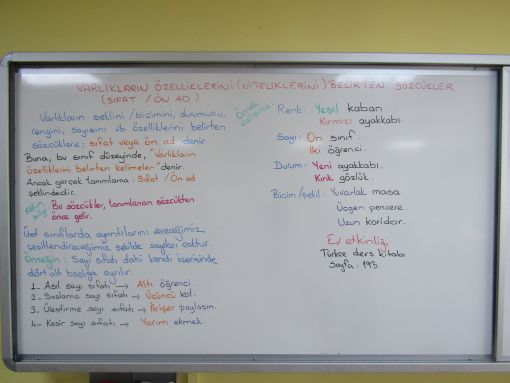 VARLIKLARIN ÖZELLİKLERİNİ (NİTELİKLERİNİ) BELİRTEN SÖZCÜKLER
(SIFAT / ÖN AD)
Varlıkların şeklini / biçimini, durumunu,
rengini, sayısını vb. özelliklerini belirten
sözcüklere; sıfat veya ön ad denir.
Buna, bu sınıf düzeyinde, "Varlıkların
özelliklerini belirten kelimeler" denir.
Ancak gerçek tanımlama: Sıfat / Ön ad
şeklindedir.
Altın bilgi
Bu sözcükler, tanımlanan sözcükten
önce gelir.
Üst sınıflarda ayrıntılarını vereceğimiz,
çeşitlendireceğimiz şekilde sayıları çoktur.
Örneğin: Sayı sıfatı dahi kendi içerisinde
dört alt başlığa ayrılır.
1- Asıl sayı sıfatı → Altı öğrenci.
2- Sıralama sayı sıfatı → Üçüncü kat.
3- Üleştirme sayı sıfatı → İkişer paylaşım.
4- Kesir sayı sıfatı → Yarım ekmek.
Örnek çalışma
Renk: Yeşil kaban.
Kırmızı ayakkabı.
Sayı: On sınıf.
İki öğrenci.
Durum: Yeni ayakkabı.
Kırık gözlük.
Biçim/şekil: Yuvarlak masa.
Üçgen pencere.
Uzun koridor.
Ev etkinliği,
Türkçe ders kitabı
Sayfa: 193